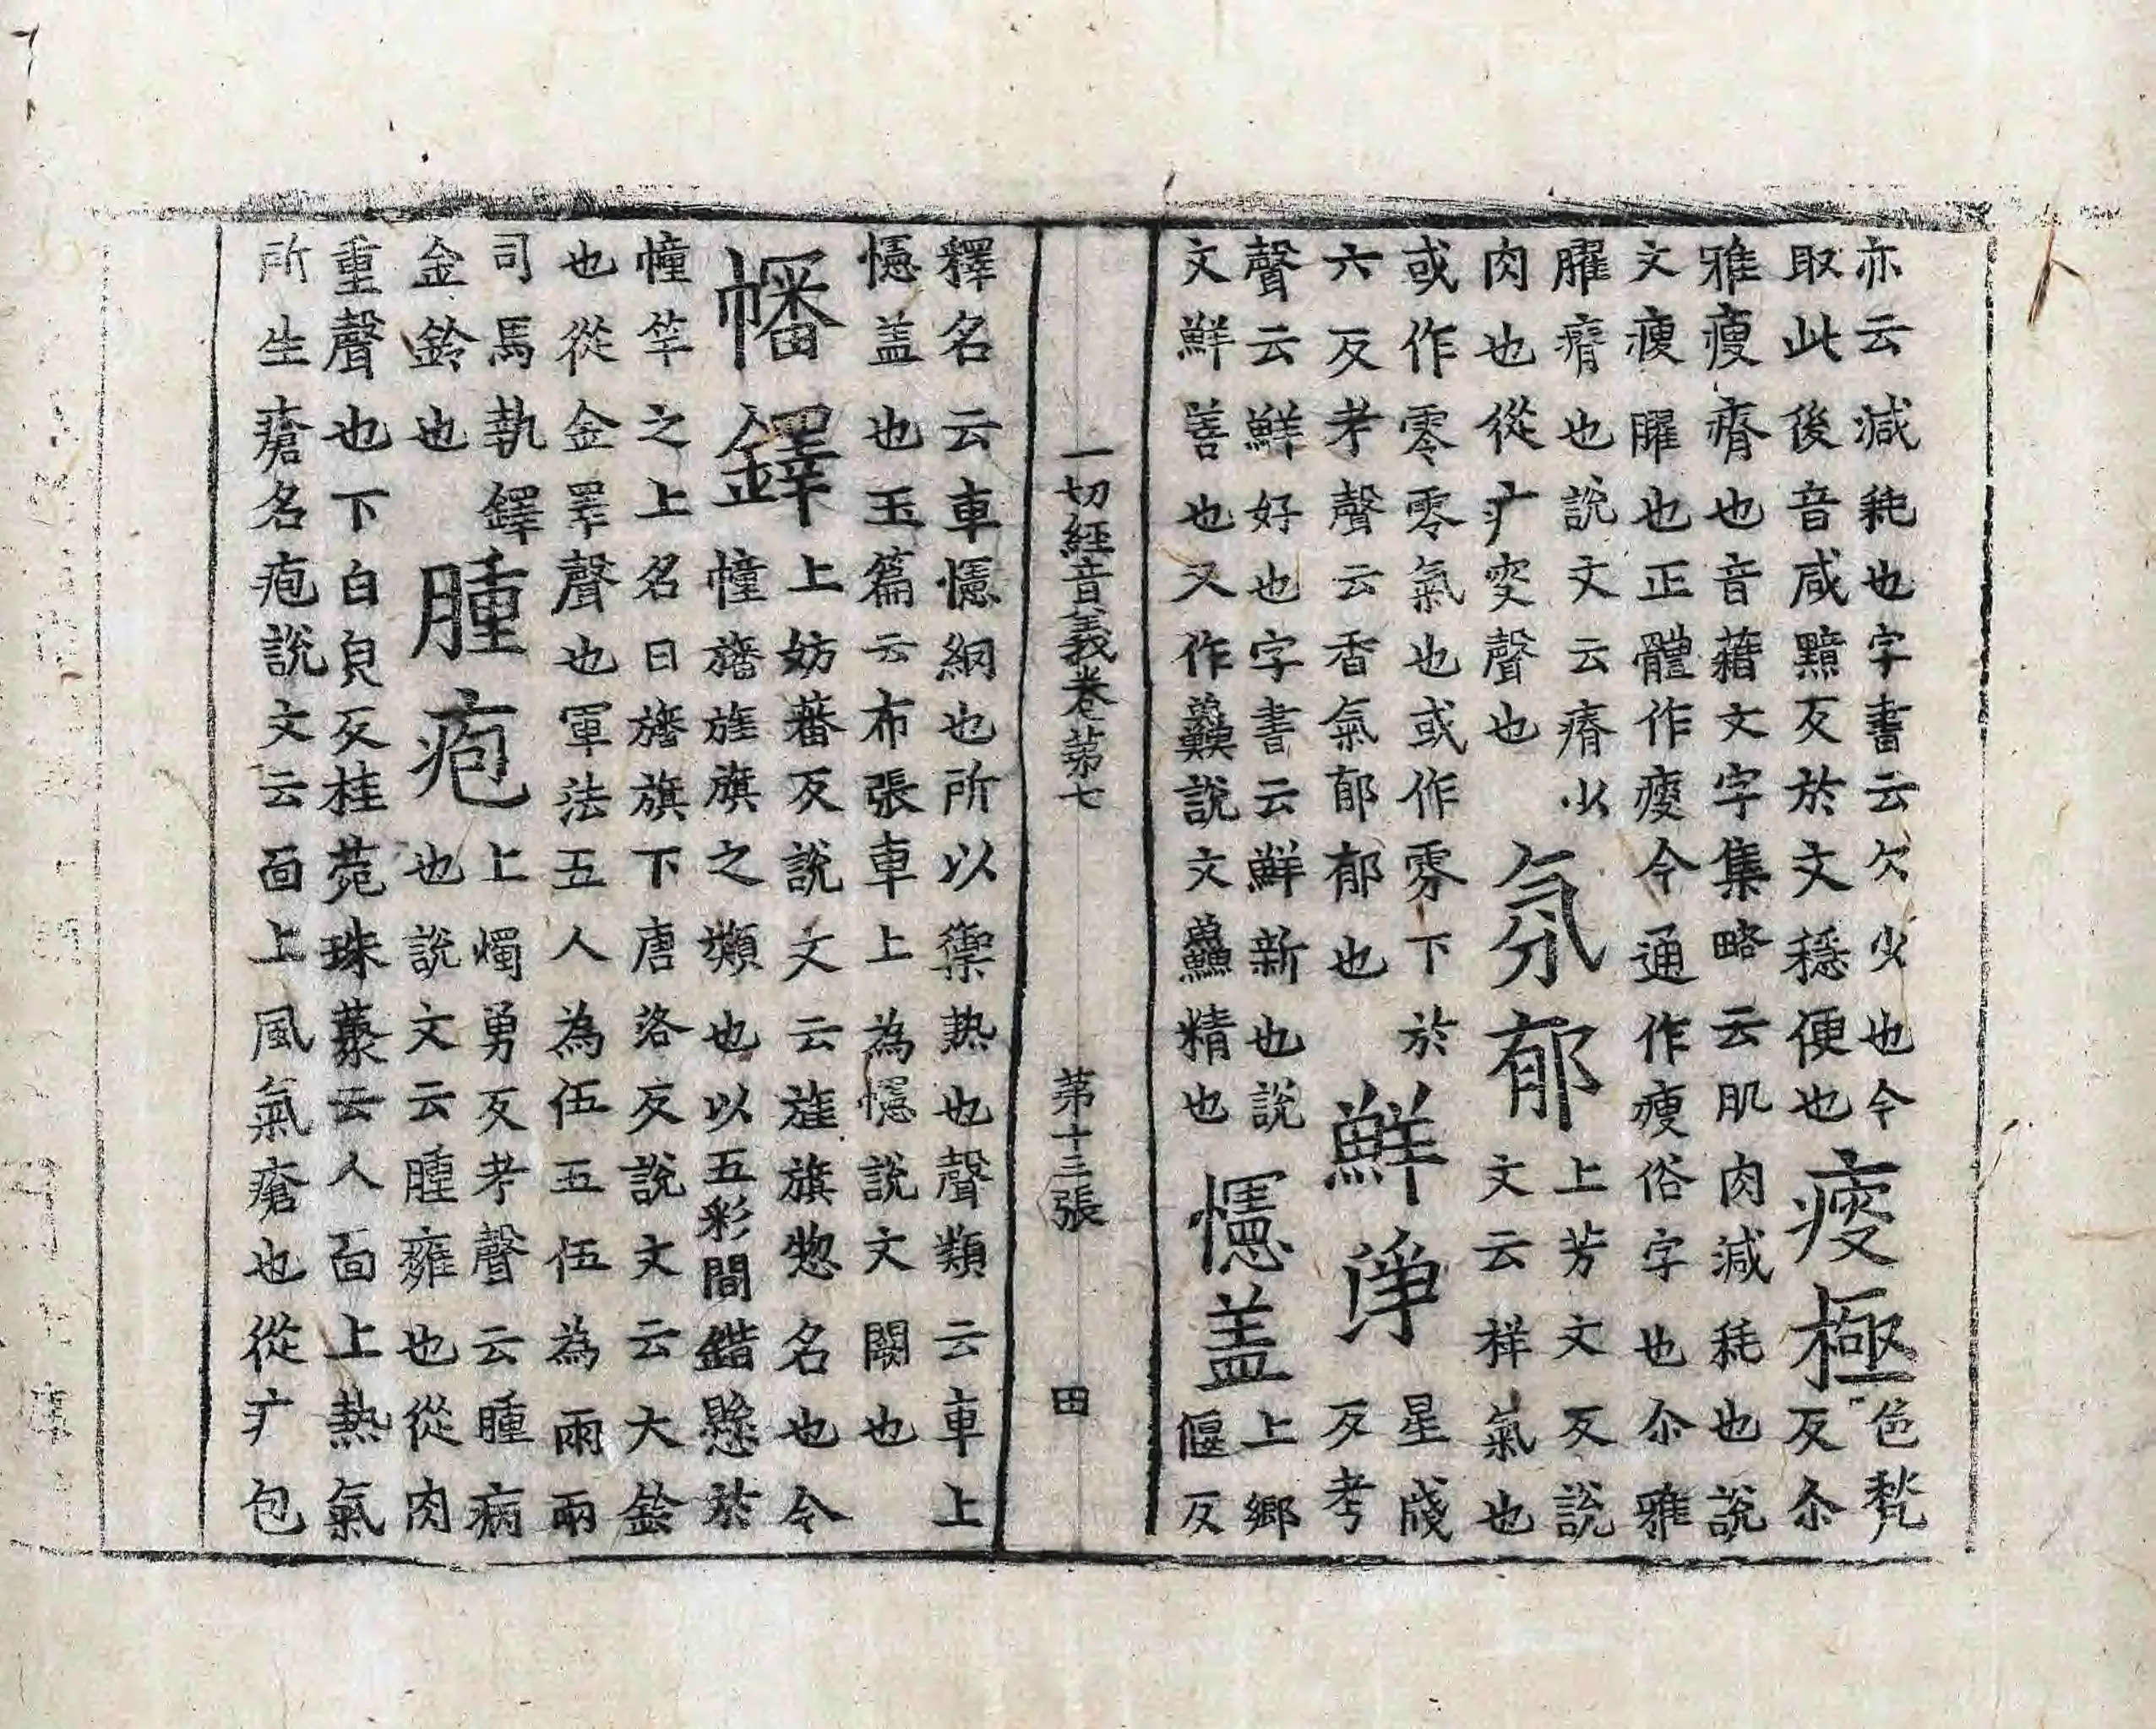 亦云減耗也字書云欠少也今
取此後音咸黯反於文穩便也
瘦極
色甃
反尒
雅瘦瘠也音藉文字集略云肌肉減耗也說
文瘦臞也正體作㾮今通作瘦俗字也尒雅
臞瘠也說文云瘠少
肉也從疒叜聲也
氛郁
上芳文反說
文云祥氣也
或作零零氣也或作雰下於
六反考聲云香氣郁郁也
鮮淨
星牋
反考
聲云鮮好也字書云鮮新也說
文鮮善也又作說文鱻精也
幰盖
上鄉
偃反
一切經音義卷第七 第十三張 田
釋名云車幰網也所以禦熱也聲類云車上
幰盖也玉篇云布張車上為幰說文闕也
幡鐸
上妨蕃反說文云旌旗惣名也今
幢旛旌旗之類也以五彩間錯懸於
幢竿之上名曰旛旗下唐洛反說文云大鈴
也從金睪聲也軍法五人為伍五伍為兩兩
司馬執鐸
金鈴也
腫疱
上燭勇反考聲云腫病
也說文云腫癰也從肉
重聲也下白皃反桂菀珠藂云人面上熱氣
所生瘡名疱說文云面上風氣瘡也從疒包